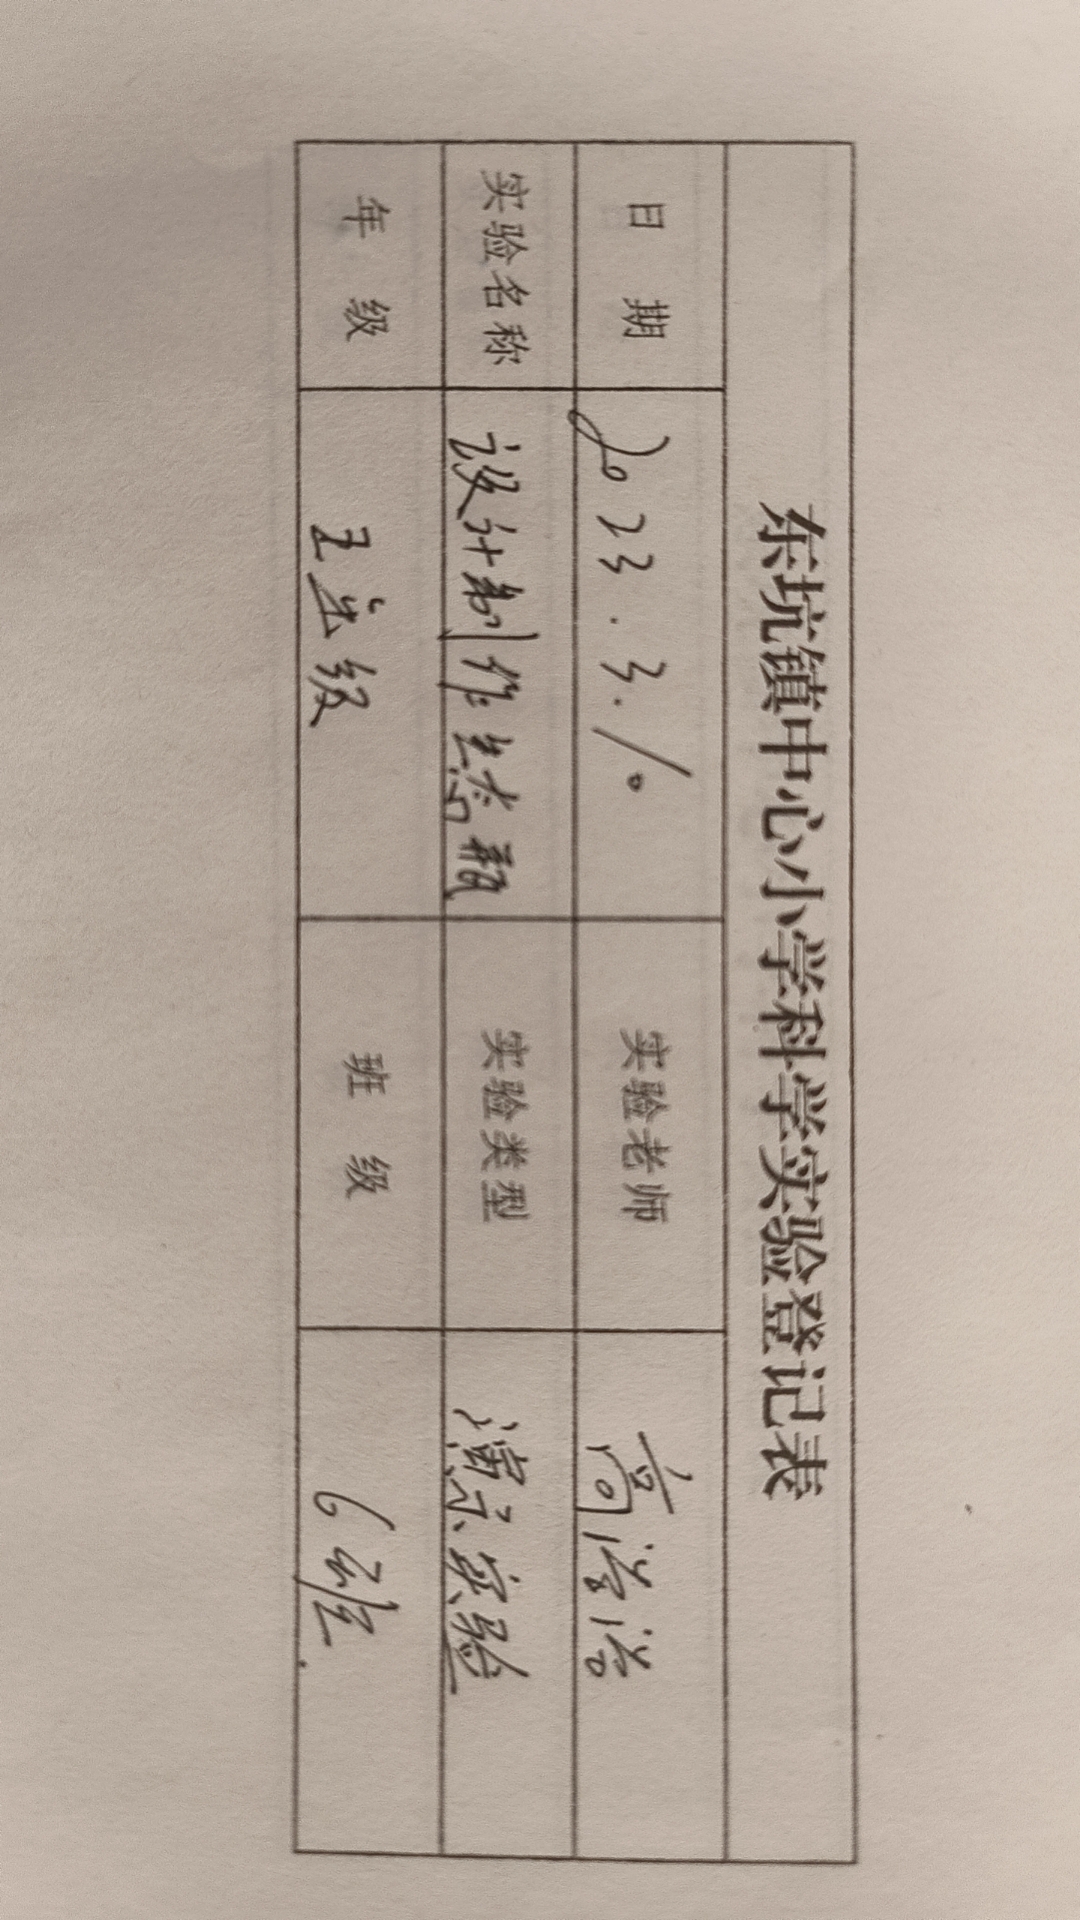 东坑镇中心小学科学实验登记表
日期 2023.3.10 实验老师 高浴浴
实验名称 设计制作生态瓶 实验类型 演示实验
年级 五年级 班级 6班